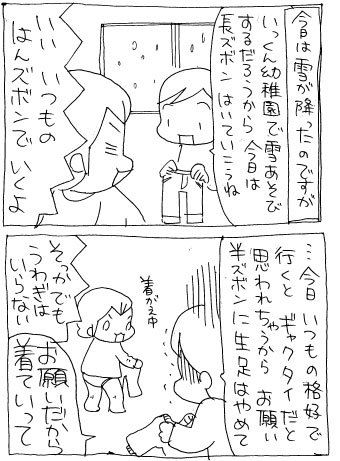 今日は雪が降ったのですが
いっくん幼稚園で雪あそび
するだろうから 今日は
長ズボン はいていこうね
いい いつもの
はんズボンで いくよ
…今日 いつもの格好で
行くと ギャクタイだと
思われちゃうから お願い
半ズボンに生足はやめて
着がえ中
そっかでも
うわぎは
いらない
お願いだから
着ていって